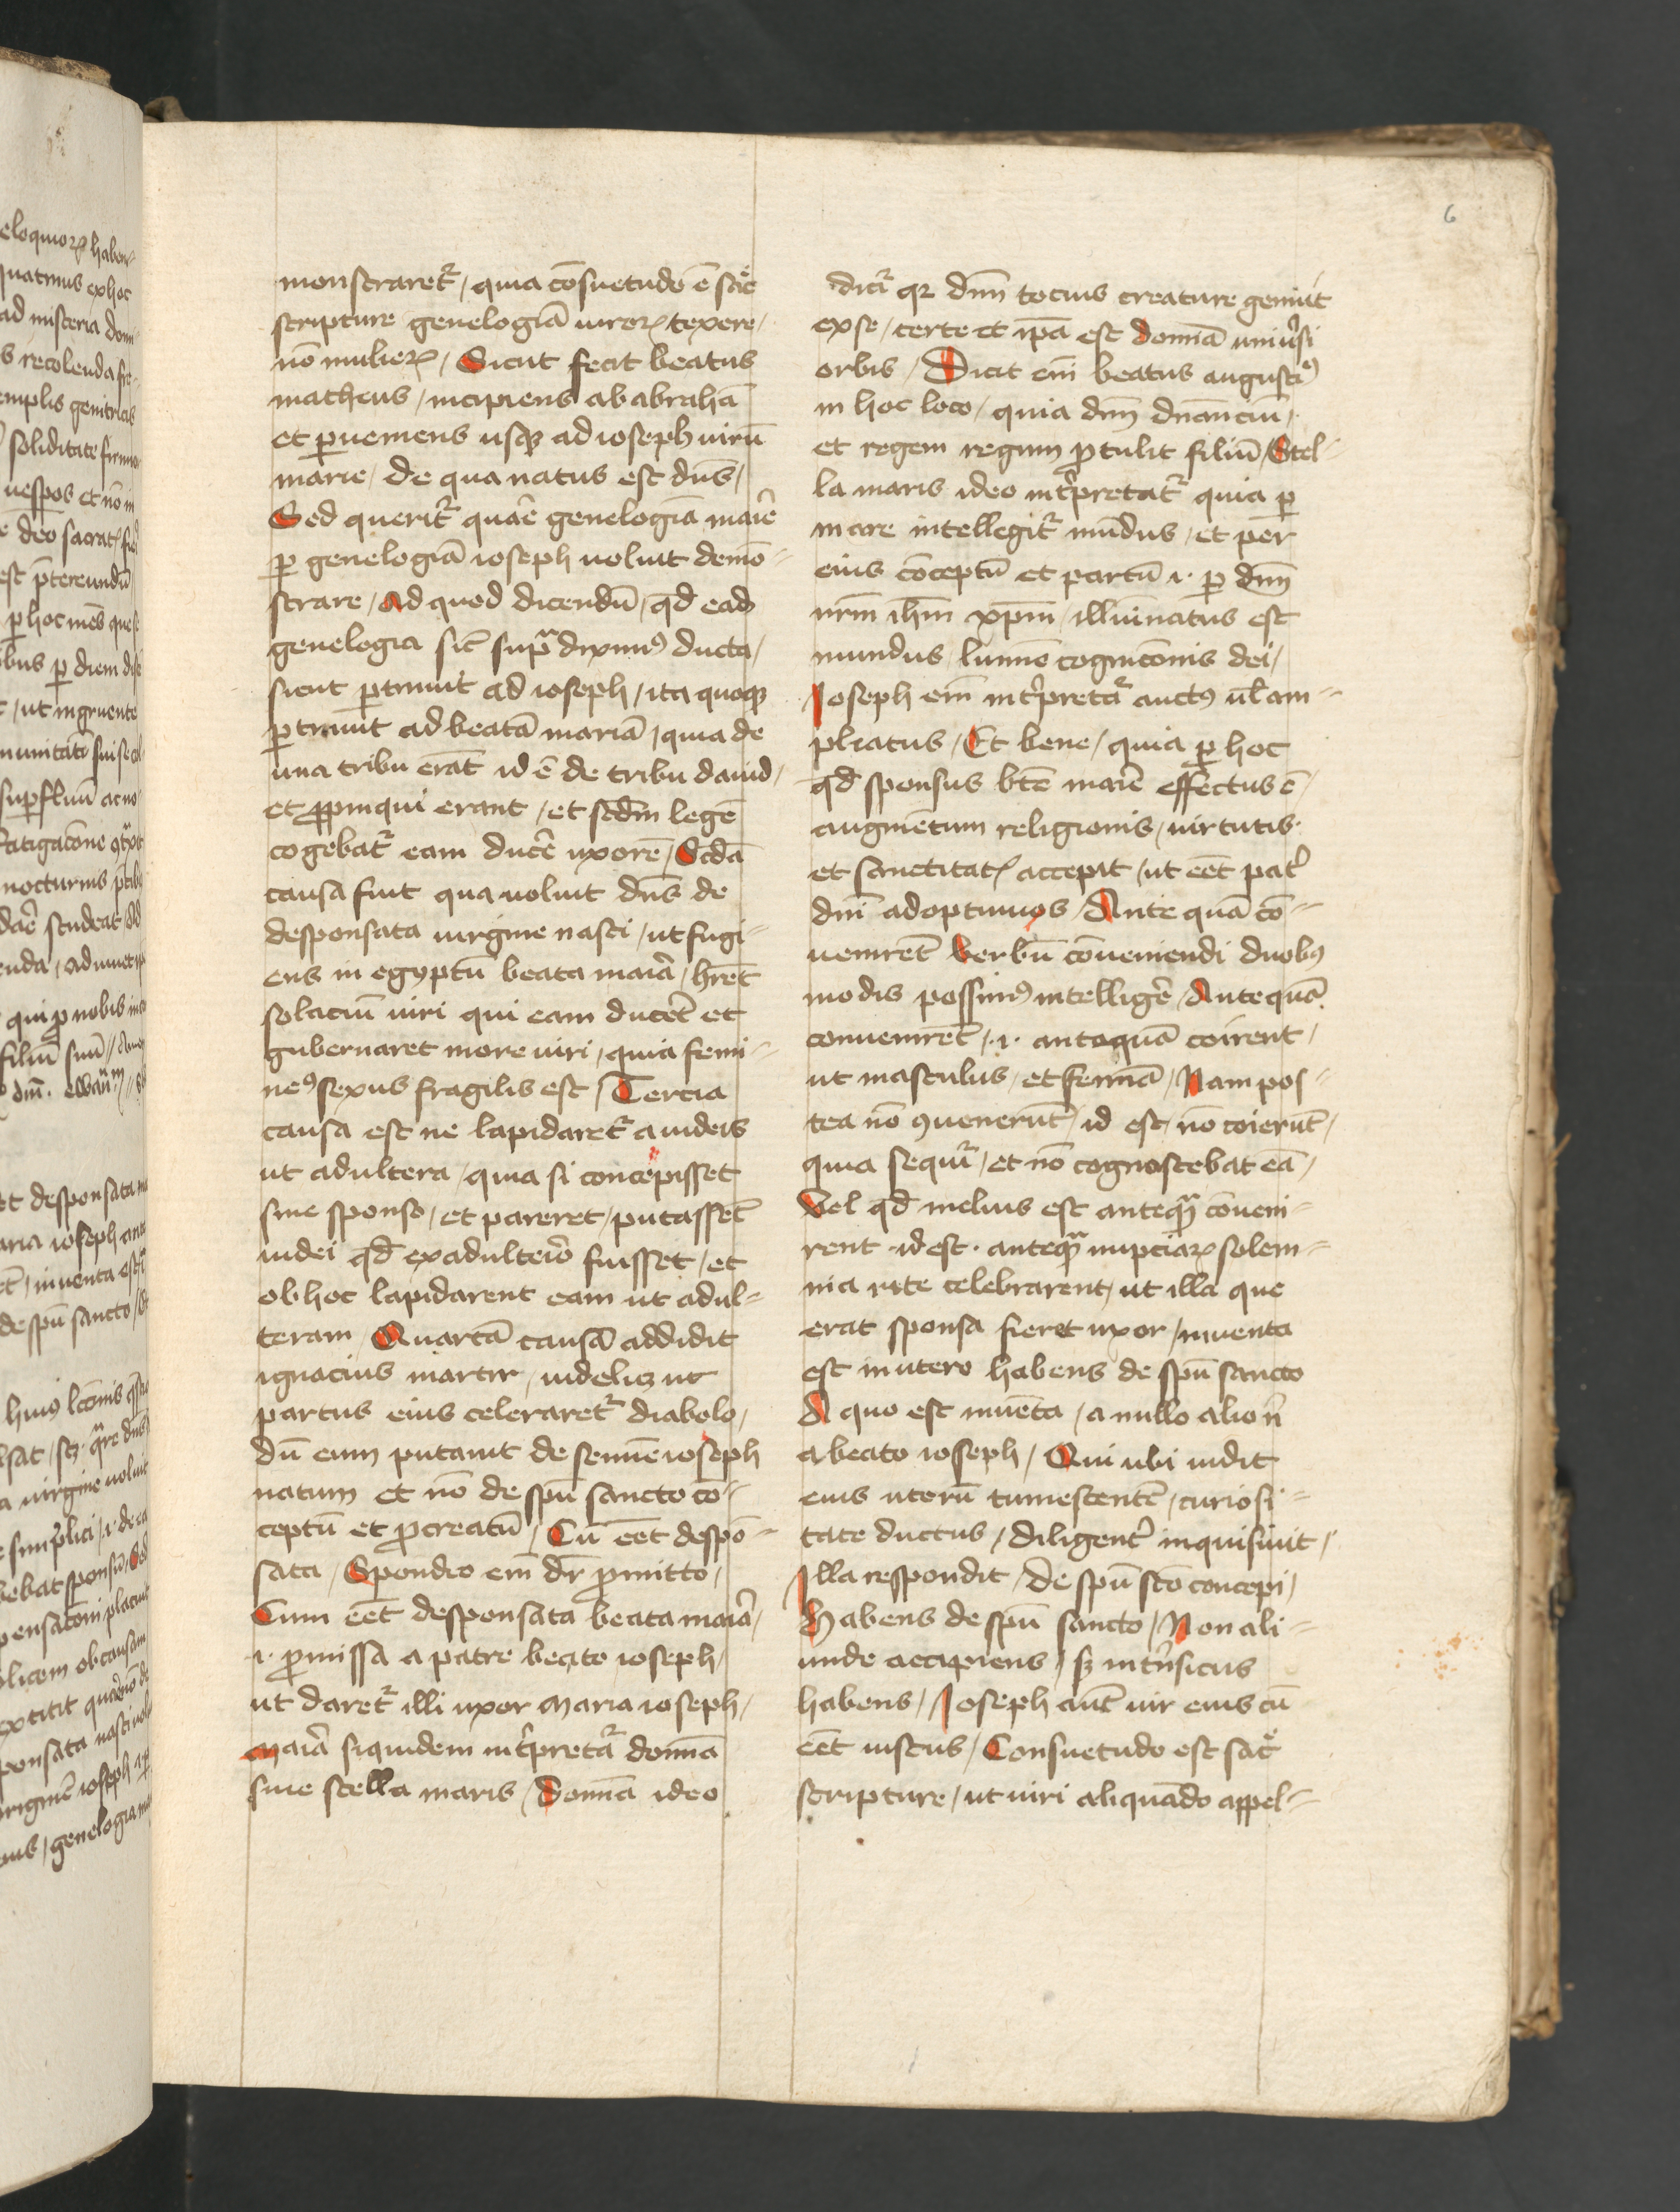 6
monstraretᷣ / quia cōsuetudo ē sac̄e
scripture genelogiā uiroꝝ texere /
nō mulieꝝ / Sicut fecit beatus
matheus / incipiens ab abrahā
et ꝑueniens usqꝫ ad ioseph uirū
marie / de qua natus est dn̄s /
Sed queritᷣ quar̄e genelogiā mar̄ie
ꝑ genelogiā ioseph uoluit demō-
strare / Ad quod dicendū / qd̄ eadꝫ
genelogia sic̄ supᵃ diximꝰ ducta /
sicut ꝑtinuit ad ioseph / ita quoqꝫ
ꝑtinuit ad beatā mariā / quia de
una tribu erāt id ē de tribu dauid /
et ꝓpinqui erant / et sc̄dm legē
cogebatᷣ eam ducēr uxorē / Scd̄a
causa fuit qua uoluit dn̄s de
desponsata uirgine nasci / ut fugi-
ens in egyptū beata mar̄ia / hr̄et
solaciū uiri qui eam ducēt et
gubernaret more uiri / quia femi-
neꝰ sexus fragilis est / Tercia
causa est ne lapidaretᷣ a iudeis
ut adultera / quia si concepisset
sine sponso / et pareret / putassēt
iudei qd̄ ex adulteīo fuisset / et
ob hoc lapidarent eam ut adul-
teram / Quartā causā addidit
ignacius martir / uidelicꝫ ut
partus eius celeraretᷣ diabolo /
dū eum putauit de semīe ioseph
natum et nō de spū sancto cō-
ceptū et ꝓcreatū / Cū eēt despō-
sata / Spondeo em̄ dr̄ ꝓmitto /
Cum eēt desponsata beata mar̄ia /
·i· ꝓmissa a patre beato ioseph /
ut daretᷣ illi uxor Maria ioseph /
Mar̄ia siquidem int̄pretaᷣ domīa
siue stella maris / Domīa ideo
dicīᷣ qꝛ dn̄m tocius creature genuit
ex se / certe et ip̄a est Domīa uniūsi
orbis / Dicit em̄ beatus augustiꝰ
in hoc loco / quia dn̄m dn̄anciū /
et regem regum ꝓtulit filiū / Stel-
la maris ideo int̄pretatᷣ quia ꝑ
mare intellegitᷣ mūdus / et per
eius cōceptū et partū ·i· ꝑ dn̄m
nr̄m ih̄m xp̄m / illuīnatus est
mundus lumīe cognicōnis dei /
Ioseph em̄ int̄pretaᷣ auctꝰ ul̄ am-
pliatus / Et bene / quia ꝑ hoc
qd̄ sponsus bt̄e mar̄ie effectus ē /
augmētum religionis / uirtutis·
et sanctitatꝭ accepit / ut eēt pat̄
dn̄i adoptiuus / Ante quā cō-
uenirēt Verbū cōueniendi duobꝰ
modis possimꝰ intelligēr / Antequā
conuenirēt / ·i· antequā coirent /
ut masculus / et femīa / Nam pos-
tea nō ꝯuenerūt / id est / nō coierūt /
quia sequīᷣ / et nō cognoscebat eā /
Vel qd̄ melius est anteqᵃ cōueni-
rent ·id est· anteqᵃ nuptiaꝝ solem-
nia rite celebrarent / ut illa que
erat sponsa fieret uxor / Inuenta
est in utero habens de spū sancto
A quo est inuēta / a nullo alio n̄
a beato ioseph / Qui ubi uidit
eius uterū tumescentē / curiosi-
tate ductus / diligent̄ inquisiuit /
Illa respondit / de spū sc̄o concepi /
Habens de spū sancto / Non ali-
unde accipiens / sꝫ int̄nsicus
habens / Ioseph aūt uir eius cū
eēt iustus / Consuetudo est sac̄e
scripture / ut uiri aliquādo appel-